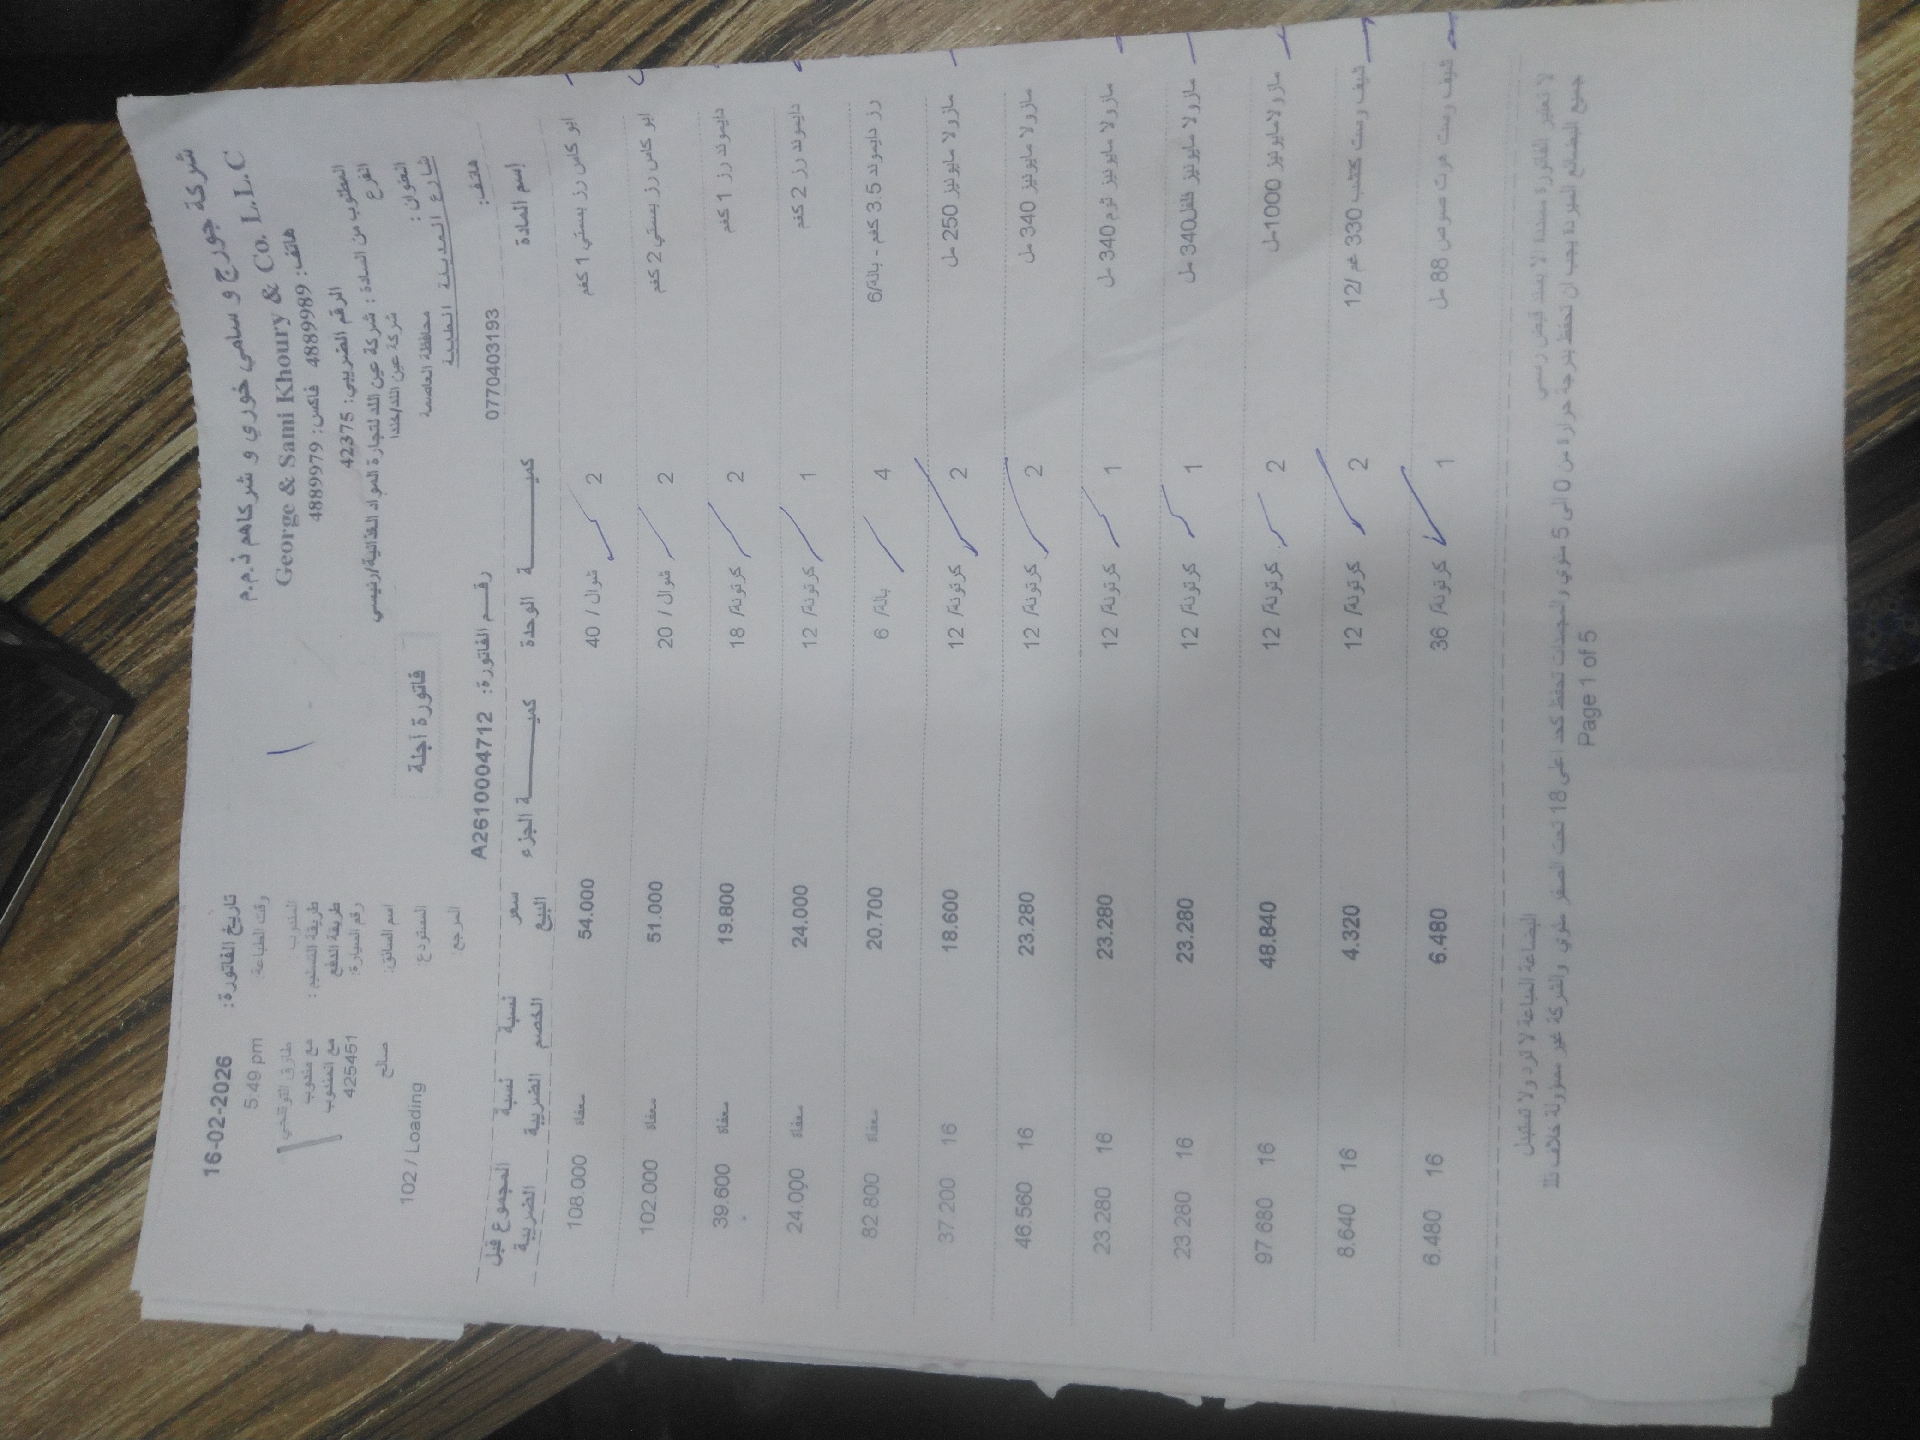 شركة جورج و سامي خوري و شركاهم ذ.م.م
George & Sami Khoury & Co. L.L.C
هاتف: 4889989 فاكس: 4889979
الرقم الضريبي: 42375
المطلوب من السادة : شركة عين اللد لتجارة المواد الغذائية/رئيسي
الفرع شركة عين اللد/خلدا
العنوان : محافظة العاصمة
شارع المدينة الطبية
هاتف: 0770403193
فاتورة آجلة
رقم الفاتورة: A2610004712
تاريخ الفاتورة: 16-02-2026
وقت الطباعة: 5.49 pm
المندوب طارق
طريقة التسليم : مع مندوب
طريقة الدفع مع المندوب
رقم السيارة: 425451
اسم السائق: صالح
المستودع: 102 / Loading
المرجع:
إسم المادة كميـــة الوحدة كميـــة الجزء سعر البيع نسبة الخصم نسبة الضريبة المجموع قبل الضريبة
ابو كاس رز بسمتي 1 كغم 2 شوال / 40 54.000 معفاه 108.000
ابو كاس رز بسمتي 2 كغم 2 شوال / 20 51.000 معفاه 102.000
دايموند رز 1 كغم 2 كرتونة/ 18 19.800 معفاه 39.600
دايموند رز 2 كغم 1 كرتونة/ 12 24.000 معفاه 24.000
رز دايموند 3.5 كغم - بالة/6 4 بالة/ 6 20.700 معفاه 82.800
مازولا مايونيز 250 مل 2 كرتونة/ 12 18.600 16 37.200
مازولا مايونيز 340 مل 2 كرتونة/ 12 23.280 16 46.560
مازولا مايونيز ثوم 340 مل 1 كرتونة/ 12 23.280 16 23.280
مازولا مايونيز فلفل 340 مل 1 كرتونة/ 12 23.280 16 23.280
مازولا مايونيز 1000 مل 2 كرتونة/ 12 48.840 16 97.680
شيف وست كتشب 330 غم /12 2 كرتونة/ 12 4.320 16 8.640
شيف وست هوت صوص 88 مل 1 كرتونة/ 36 6.480 16 6.480
لا تعتبر الفاتورة مسددة الا بسند قبض رسمي
البضاعة المباعة لا ترد ولا تستبدل
جميع البضائع المبردة يجب ان تحفظ بدرجة حرارة من 0 الى 5 مئوي والمجمدات تحفظ كحد اعلى 18 تحت الصفر مئوي والشركة غير مسؤولة خلاف ذلك
Page 1 of 5